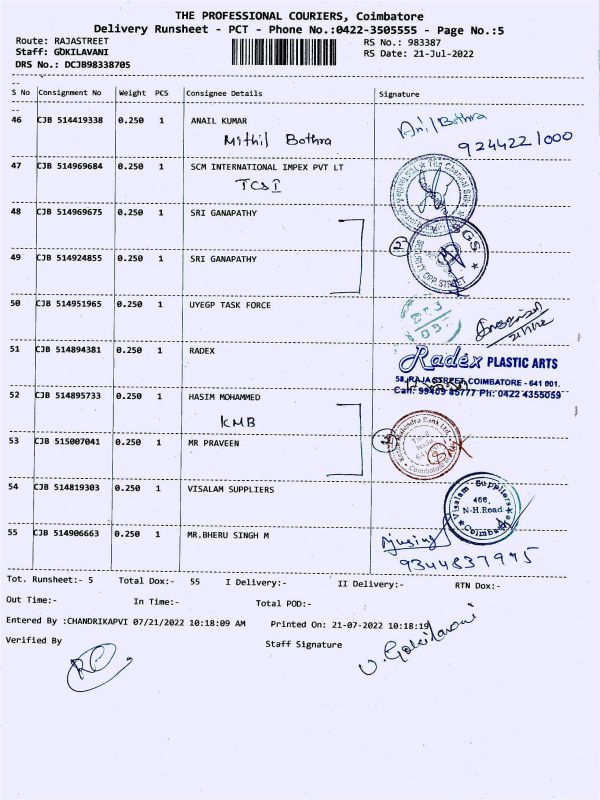 THE PROFESSIONAL COURIERS, Coimbatore
Delivery Runsheet - PCT - Phone No.:0422-3505555 - Page No.:5
Route: RAJASTREET RS No.: 983387
Staff: GOKILAVANI RS Date: 21-Jul-2022
DRS No.: DCJB98338705
S No Consignment No Weight PCS Consignee Details Signature
46 CJB 514419338 0.250 1 ANAIL KUMAR Anil Bothra
Mithil Bothra 9244221000
47 CJB 514969684 0.250 1 SCM INTERNATIONAL IMPEX PVT LT
TCSI
48 CJB 514969675 0.250 1 SRI GANAPATHY
49 CJB 514924855 0.250 1 SRI GANAPATHY
50 CJB 514951965 0.250 1 UYEGP TASK FORCE
51 CJB 514894381 0.250 1 RADEX Radex PLASTIC ARTS
58, RAJA STREET, COIMBATORE - 641 001.
Cell: 99409 85777 Ph: 0422 4355059
52 CJB 514895733 0.250 1 HASIM MOHAMMED
KMB
53 CJB 515007041 0.250 1 MR PRAVEEN
54 CJB 514819303 0.250 1 VISALAM SUPPLIERS Visalam Suppliers
466,
N-H.Road
Coimbatore
55 CJB 514906663 0.250 1 MR.BHERU SINGH M
9344837995
Tot. Runsheet:- 5 Total Dox:- 55 I Delivery:- II Delivery:- RTN Dox:-
Out Time:- In Time:- Total POD:-
Entered By :CHANDRIKAPVI 07/21/2022 10:18:09 AM Printed On: 21-07-2022 10:18:19
Verified By Staff Signature
V. Gokilavani